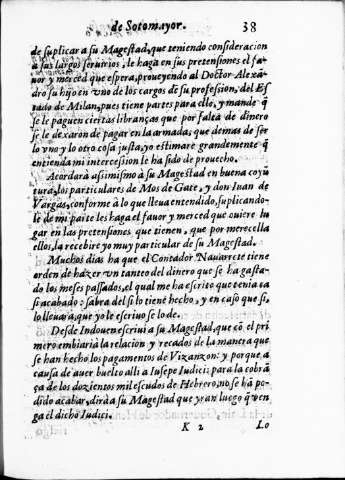 de Sotomayor. 38
de suplicar a su Magestad, que teniendo consideracion
a sus largos seruicios, le haga en sus pretensiones el fa-
uor y merced que espera, proueyendo al Doctor Alexã-
dro su hijo en vno de los cargos de su profession, del Es
tado de Milan, pues tiene partes para ello, y mande q̃
le paguen ciertas libranças que por falta de dinero
se le dexaron de pagar en la armada; que demas de ser
lo vno y lo otro cosa justa, yo estimarè grandemente q̃
entienda mi intercession le ha sido de prouecho.
Acordarà assimismo à su Magestad en buena coyũ
tura, los particulares de Mos de Gate, y don Iuan de
Vargas, conforme à lo que lleua entendido, suplicando-
le de mi parte les haga el fauor y merced que ouiere lu
gar en las pretensiones que tienen, que por merecella
ellos, la recebire yo muy particular de su Magestad.
Muchos dias ha que el Contador Nauarrete tiene
orden de hazer vn tanteo del dinero que se ha gasta-
do los meses passados, el qual me ha escrito que tenia ca
si acabado: sabra del si lo tiene hecho, y en caso que si,
lo lleuarà, que yo le escriuo se lo de.
Desde Indouen escriui a su Magestad, que cõ el pri
mero embiaria la relacion y recados de la manera que
se han hecho los pagamentos de Vizanzon: y porque a
causa de auer buelto alli a Iusepe Iudici; para la cobrã
ça de los dozientos mil escudos de Hebrero, no se hà po-
dido acabar, dirà a su Magestad que yran luego q̃ ven
ga el dicho Iudici.
K 2 Lo